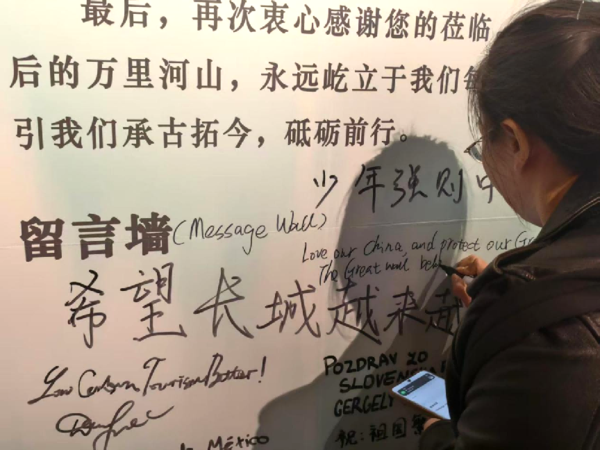 最后，再次衷心感谢您的莅临
后的万里河山，永远屹立于我们
引我们承古拓今，砥砺前行。
少年强则中
留言墙(Message Wall)
Love our China, and protect our
The Great wall
希望长城越来越
Low Carbon Tourism Better!
POZDRAV ZO
SLOVENSKA
GERGELY
祝:祖国
México